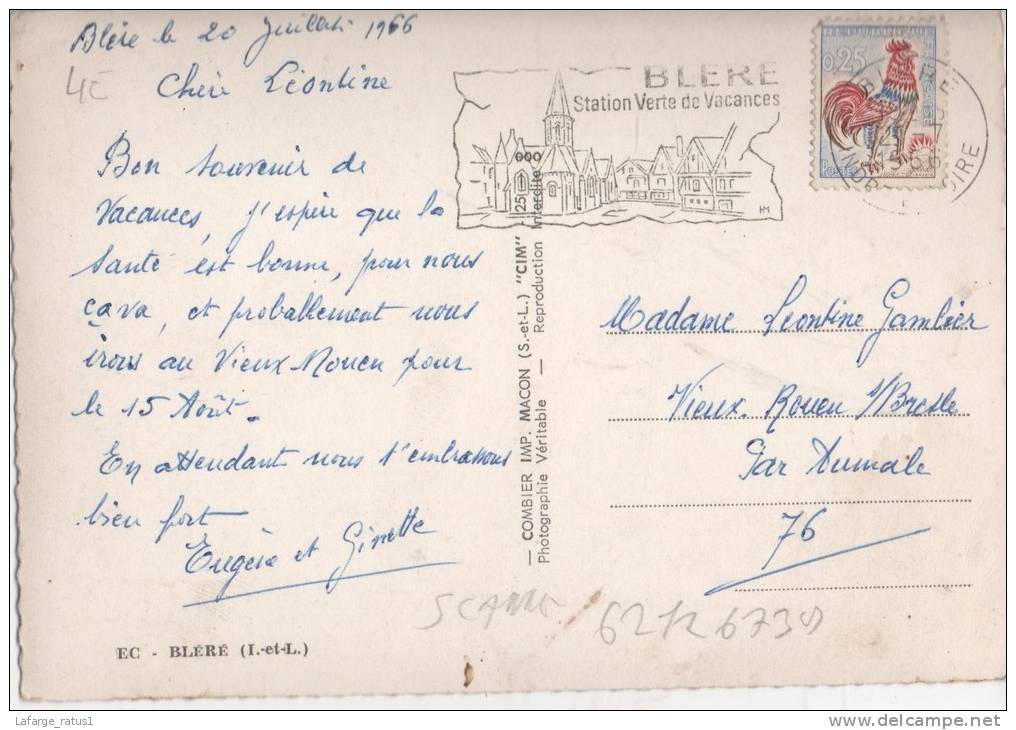 Blére le 20 Juillet 1966
4€
Chère Léontine
Bon souvenir de
vacances, j'espère que la
santé est bonne, pour nous
ça va, et probablement nous
irons au Vieux Rouen pour
le 15 Août.
En attendant nous t'embrassons
bien fort
Eugène et Ginette
EC - BLÉRÉ (I.-et-L.)
BLERE
Station Verte de Vacances
HM
0,25
INDRE LOIRE
— COMBIER IMP. MACON (S.-et-L.) "CIM"
Photographie Véritable — Reproduction Interdite
Madame Léontine Gambier
Vieux Rouen s/Bresle
Par Aumale
76
Lafarge_ratus1
delcampe.net